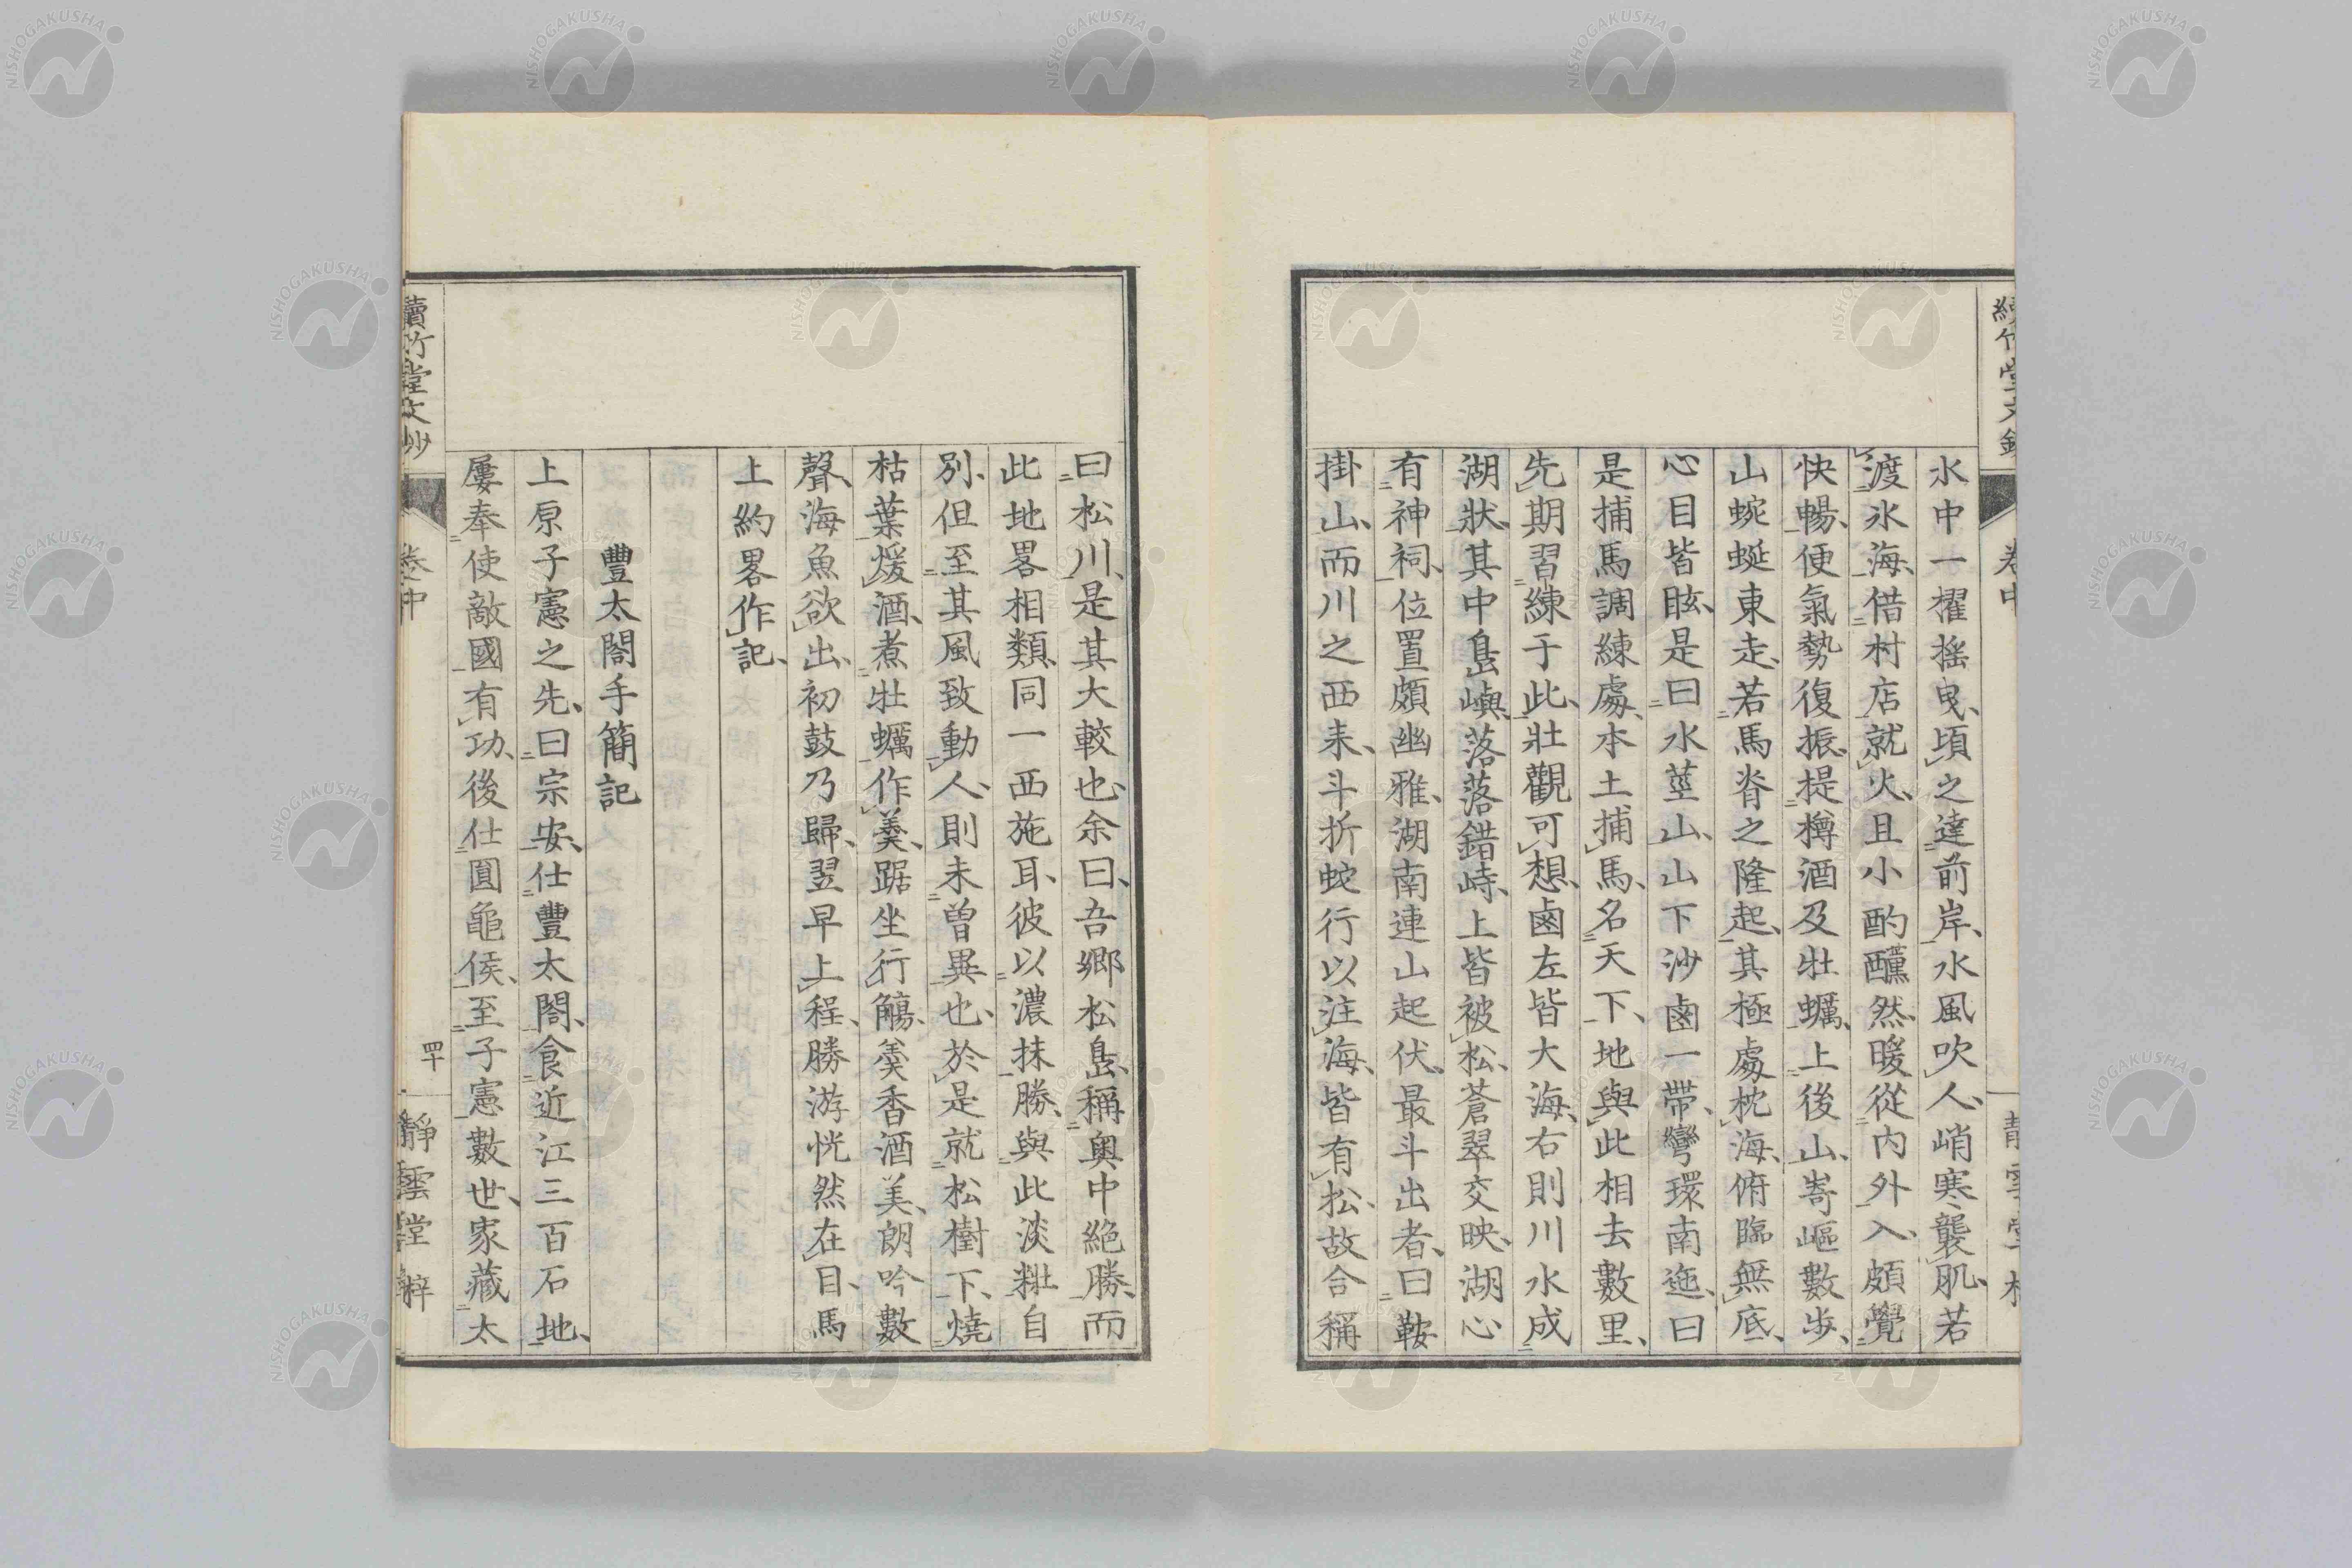 水中一擢搖曳、頃之達前岸、水風吹人、峭寒襲肌、若
渡氷海、借村店就火、且小酌醺然、暖從內外入、頗覺
快暢、便氣勢復振、提樽酒及牡蠣、上後山、嵜嶇數步、
山蜿蜒東走、若馬脊之隆起、其極處枕海、俯臨無底、
心目皆眩、是曰水莖山、山下沙鹵一帶、彎環南迤、曰
是捕馬調練處、本土捕馬、名天下、地與此相去數里、
先期習練于此、壯觀可想、鹵左皆大海、右則川水成
湖狀、其中島嶼、落落錯峙、上皆被松、蒼翠交映、湖心
有神祠、位置頗幽雅、湖南連山起伏、最斗出者、曰鞍
掛山、而川之西來、斗折蛇行以注海、皆有松、故合稱
曰松川、是其大較也、余曰、吾鄉松島、稱奧中絕勝、而
此地畧相類、同一西施耳、彼以濃抹勝、與此淡粧自
別、但至其風致動人、則未曾異也、於是就松樹下、燒
枯葉煖酒、煮牡蠣作羹、踞坐行觴、羹香酒美、朗吟數
聲、海魚欲出、初鼓乃歸、翌早上程、勝游恍然在目、馬
上約畧作記、
豐太閤手簡記
上原子憲之先、曰宗安、仕豐太閤、食近江三百石地、
屢奉使敵國有功、後仕圓龜侯、至子憲數世、家藏太
續竹堂文鈔
卷中
四十
靜雲堂梓
NISHOGAKUSHA